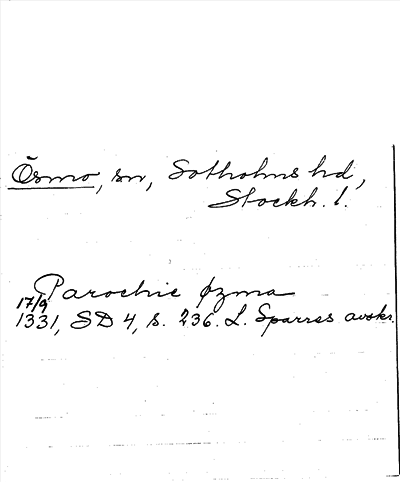 Ösmo, sn, Sotholms hd,
Stockh. l.
Parochie øzma
17/9
1331, SD 4, s. 236. L. Sparres avskr.